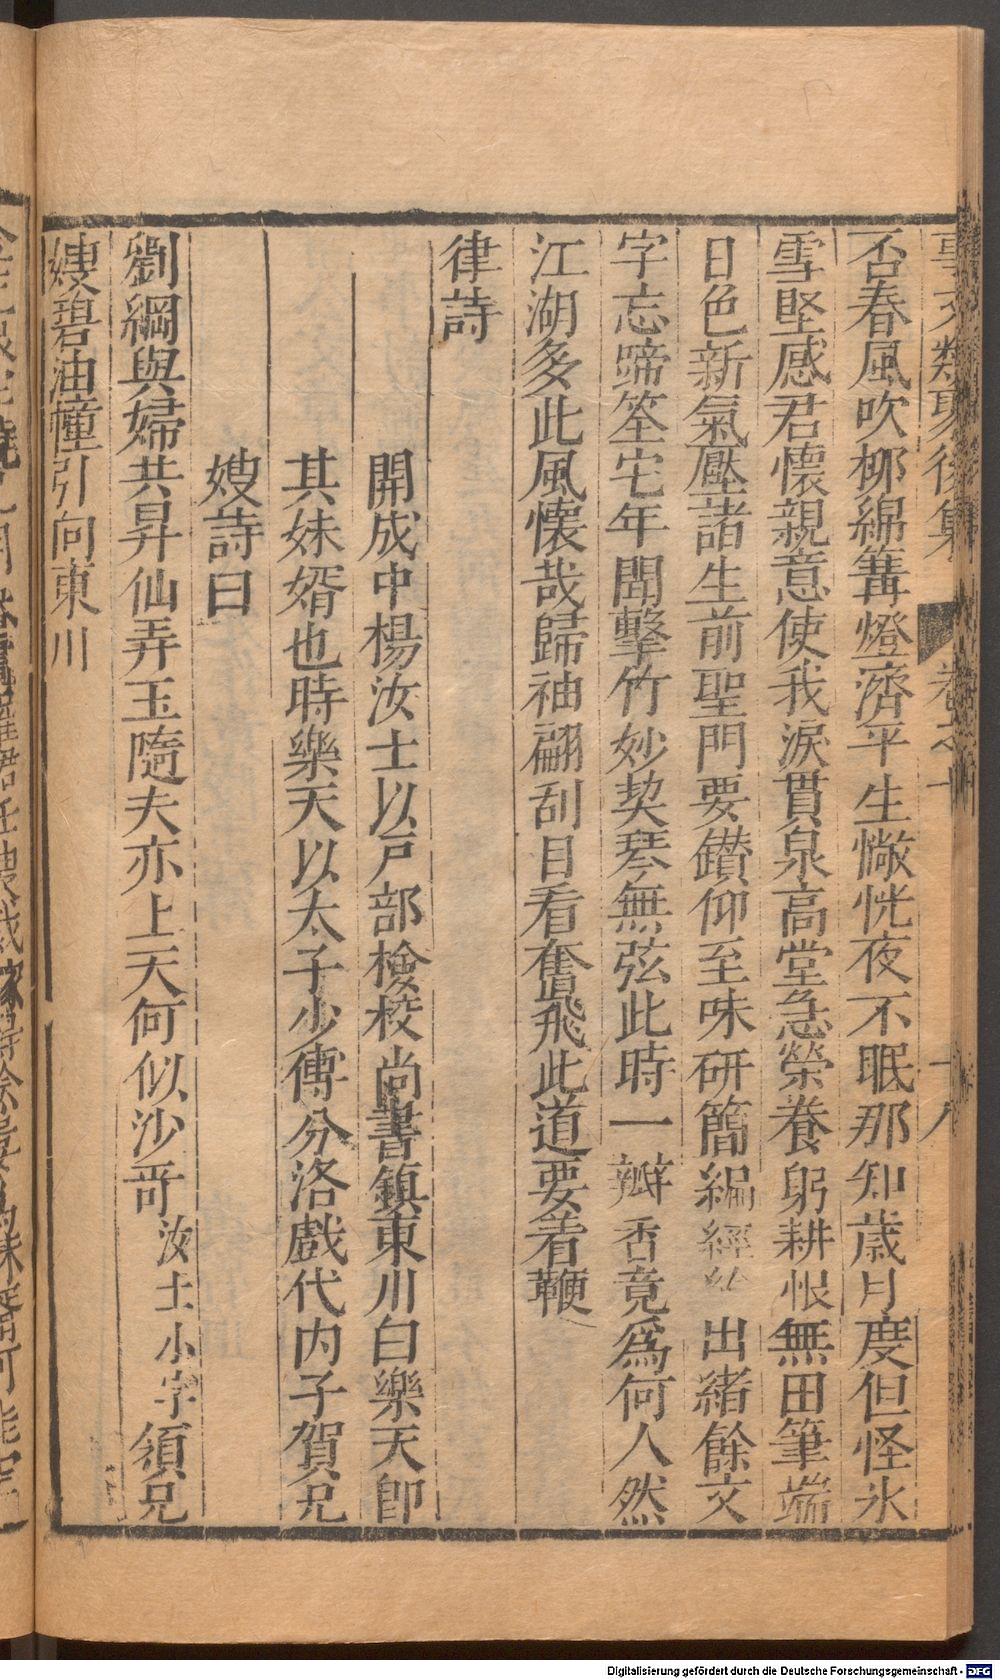 事文類聚後集 卷之十 十八
否春風吹柳綿篝燈濟平生惝恍夜不眠那知歲月度但怪氷
雪堅感君懷親意使我淚貫泉高堂急榮養躬耕恨無田筆端
日色新氣壓諸生前聖門要鑚仰至味研簡編經 出緒餘文
字忘蹄筌宅年聞擊竹妙契琴無弦此時一瓣香竟為何人然
江湖多此風懷哉歸袖翩刮目看奮飛此道要着鞭
律詩
開成中楊汝士以戸部檢校尚書鎮東川白樂天卽
其妹婿也時樂天以太子少傅分洛戲代內子賀兄
嫂詩曰
劉綱與婦共昇仙弄玉隨夫亦上天何似沙哥汝士小字須兄
嫂碧油幢引向東川
Digitalisierung gefördert durch die Deutsche Forschungsgemeinschaft - DFG